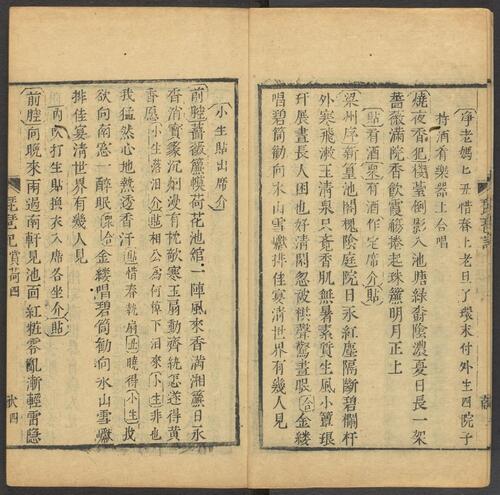 淨老媽ヒ丑惜春上老旦了環末付外生四院子
持酒有樂器上合唱
燒夜香犯棧臺倒影入池塘綠陰濃夏日長一架
薔薇滿院香飲霞觴捲起珠簾明月正上
貼看酒衆有酒作定席介貼
梁州序新篁池閣槐陰庭院日永紅塵隔斷碧欄杆
外寒飛漱玉清泉只覺香肌無暑素質生風小簟琅
玕展晝長人困也好清閒忽被棋聲驚晝眠合金縷
唱碧筒勸向氷山雪巘排佳宴清世界有幾人見
小生貼出席介
前腔薔薇簾幙荷花池館一陣風來香滿湘簾日永
香消寶篆沉烟漫有枕欹寒玉扇動齊紈怎遂得黃
香愿小生落泪介貼相公爲何倬下泪來小生非也
我猛然心地熱透香汗貼惜春執扇丑曉得小生我
欲向南窓一醉眠合金縷唱碧筒勸向氷山雪巘
排佳宴清世界有幾人見
內吹打生貼換衣入席各坐介貼
前腔向晚來雨過南軒見池面紅粧零亂漸輕雷隱
琵琶記賞荷四